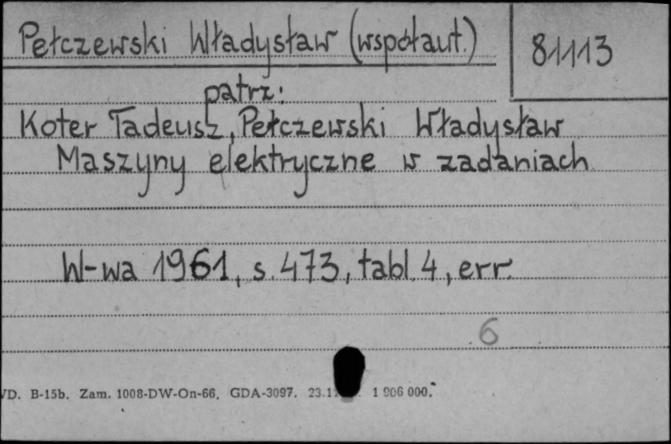 Pełczewski Władysław (współaut.)
81113
patrz:
Koter Tadeusz, Pełczewski Władysław
Maszyny elektryczne w zadaniach
W-wa 1961, s. 473, tabl. 4, err.
6
VD. B-15b. Zam. 1008-DW-On-66. GDA-3097. 1 906 000.